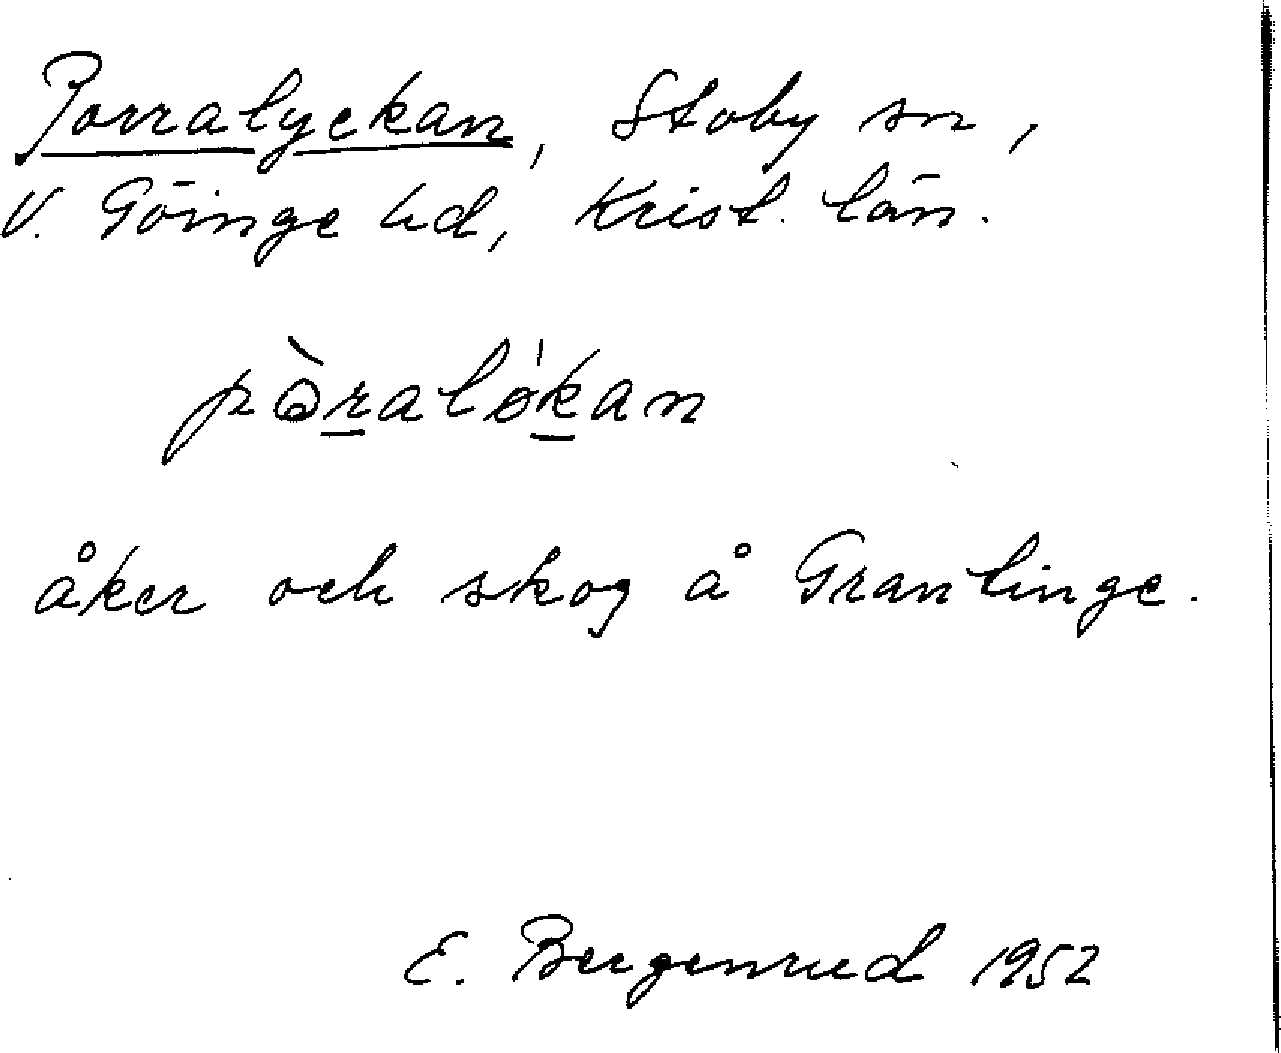 Porralyckan, Stoby sn,
V. Göinge hd, Krist. län.
pòralókan
åker och skog å Grantinge.
E. Bergenrud 1952